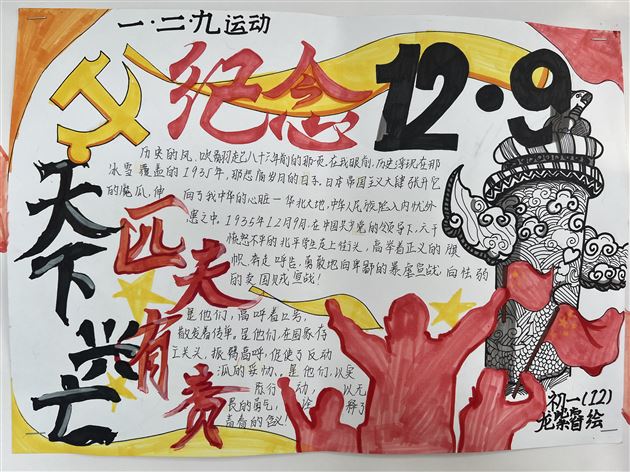 一·二·九运动
纪念12·9
天下兴亡
匹夫有责
历史的风,吹
冰雪覆盖的1935年,那悲痛岁月的日子,日本帝国主义大肆张开它
的魔爪,伸向了我中华的心脏一华北大地,中华人民族陷入内忧外
患之中。1935年12月9日,在中国共产党的领导下,六千
愤怒不平的北平学生走上街头,高举着正义的旗
帜,奔走呼告,勇敢地向卑鄙的暴虐宣战,向怯弱
的卖国贼宣战!
是他们,高呼着口号,
散发着传单。是他们,在国家存
亡关头,振臂高呼,促使了反动
派的妥协、是他们,以实
际行动,以无
畏的勇气,诠释了
青春的含义!
初一(12)
绘